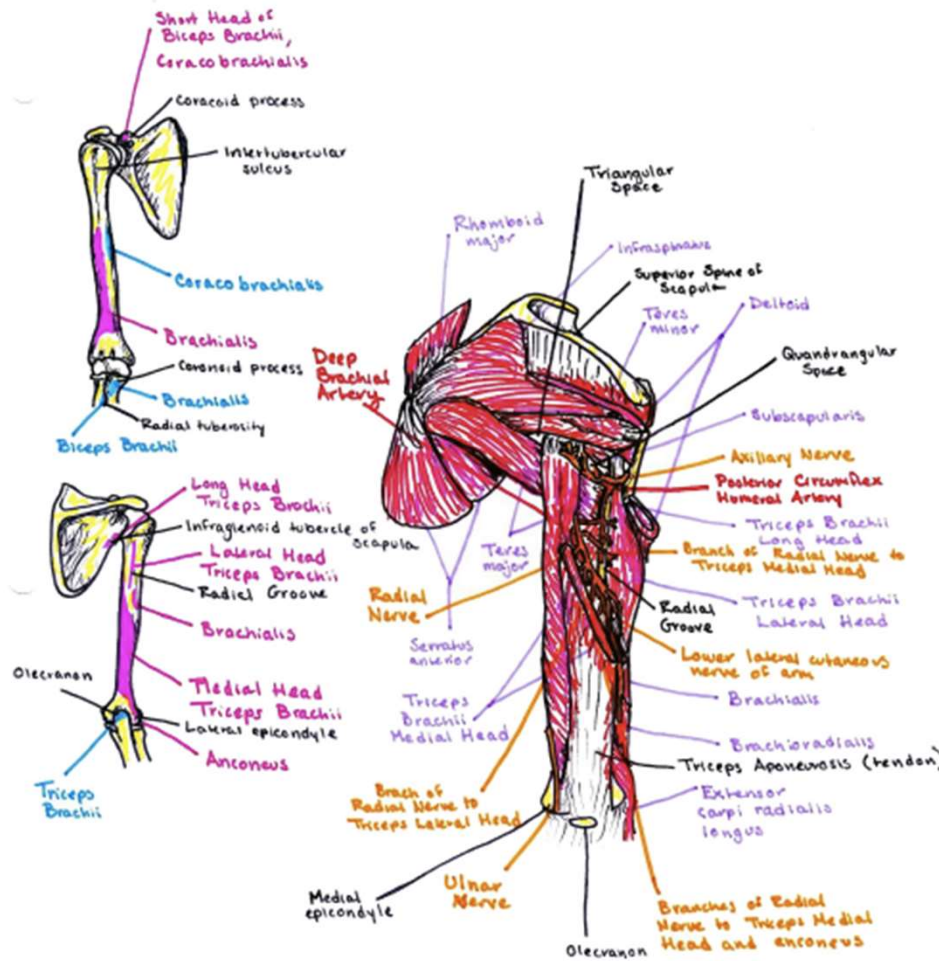 Short Head of
Biceps Brachii,
Coracobrachialis
Coracoid process
Intertubercular
sulcus
Coracobrachialis
Brachialis
Coronoid process
Brachialis
Radial tuberosity
Biceps Brachii
Long Head
Triceps Brachii
Infraglenoid tubercle of
scapula
Lateral Head
Triceps Brachii
Radial Groove
Brachialis
Olecranon
Medial Head
Triceps Brachii
Lateral epicondyle
Anconeus
Triceps
Brachii
Triangular
Space
Rhomboid
major
Infraspinatus
Superior Spine of
Scapula
Teres
minor
Deltoid
Deep
Brachial
Artery
Quandrangular
Space
Subscapularis
Axillary Nerve
Posterior Circumflex
Humeral Artery
Triceps Brachii
Long Head
Teres
major
Branch of Radial Nerve to
Triceps Medial Head
Radial
Nerve
Radial
Groove
Triceps Brachii
Lateral Head
Serratus
anterior
Lower lateral cutaneous
nerve of arm
Triceps
Brachii
Medial Head
Brachialis
Brachioradialis
Triceps Aponeurosis (tendon)
Brach of
Radial Nerve to
Triceps Lateral Head
Extensor
carpi radialis
longus
Medial
epicondyle
Ulnar
Nerve
Olecranon
Branches of Radial
Nerve to Triceps Medial
Head and enconeus